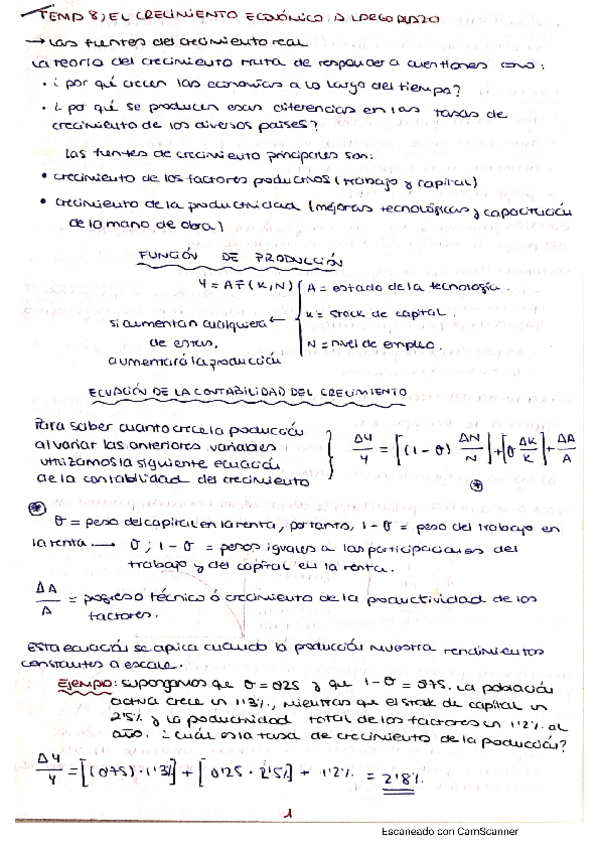 TEMA 8: EL CRECIMIENTO ECONÓMICO A LARGO PLAZO
→ Las fuentes del crecimiento real
La teoría del crecimiento trata de responder a cuestiones como:
• ¿por qué crecen las economías a lo largo del tiempo?
• ¿por qué se producen esas diferencias en las tasas de
crecimiento de los diversos países?
Las fuentes de crecimiento principales son:
• crecimiento de los factores productivos (trabajo y capital)
• crecimiento de la productividad (mejoras tecnológicas y capacitación
de la mano de obra)
FUNCIÓN DE PRODUCCIÓN
Y = AF(K,N) A = estado de la tecnología.
si aumentan cualquiera ← K = stock de capital.
de estas, N = nivel de empleo.
aumentará la producción
ECUACIÓN DE LA CONTABILIDAD DEL CRECIMIENTO
Para saber cuanto crece la producción
al variar las anteriores variables
utilizamos la siguiente ecuación
de la contabilidad del crecimiento
ΔY/Y = [(1-θ) ΔN/N] + [θ ΔK/K] + ΔA/A
*
* θ = peso del capital en la renta, por tanto, 1-θ = peso del trabajo en
la renta → θ; 1-θ = pesos iguales a las participaciones del
trabajo y del capital en la renta.
ΔA/A = progreso técnico ó crecimiento de la productividad de los
factores.
Esta ecuación se aplica cuando la producción muestra rendimientos
constantes a escala.
Ejemplo: supongamos que θ = 0'25 y que 1-θ = 0'75. La población
activa crece un 1'3%, mientras que el stock de capital un
2'5% y la productividad total de los factores un 1'2% al
año. ¿cuál es la tasa de crecimiento de la producción?
ΔY/Y = [(0'75)·1'3%] + [0'25·2'5%] + 1'2% = 2'8%.
1
Escaneado con CamScanner